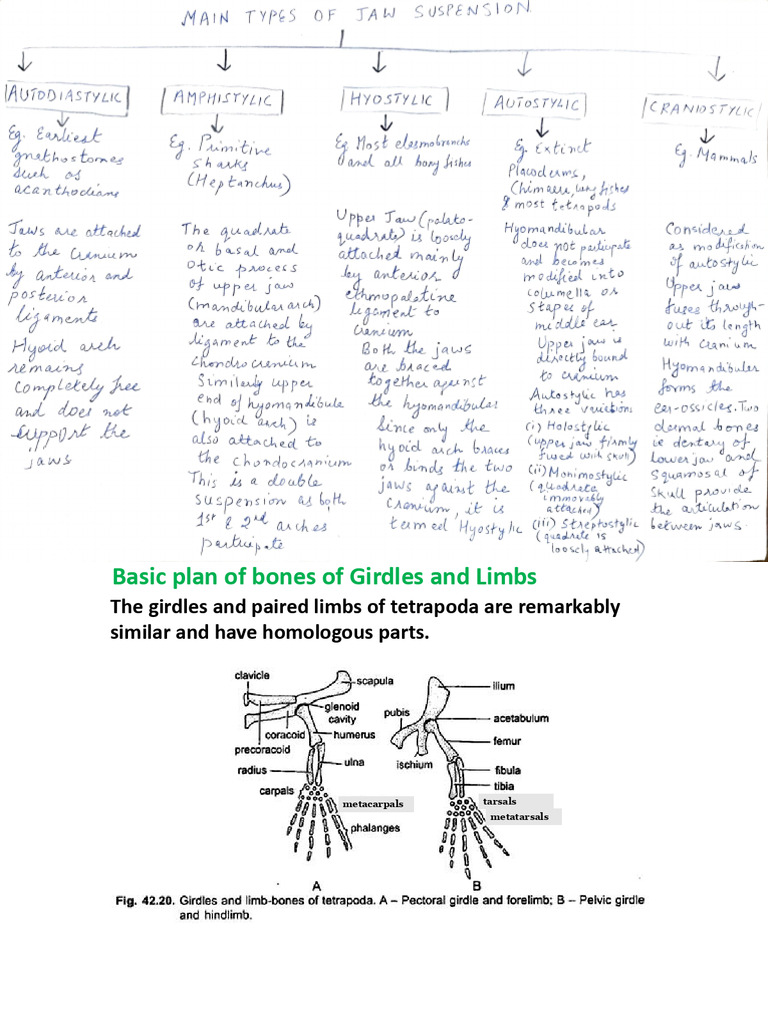 MAIN TYPES OF JAW SUSPENSION
AUTODIASTYLIC
Eg. Earliest
gnathostomes
such as
acanthodians
Jaws are attached
to the cranium
by anterior and
posterior
ligaments
Hyoid arch
remains
completely free
and does not
support the
jaws
AMPHISTYLIC
Eg. Primitive
sharks
(Heptanchus)
The quadrate
or basal and
otic process
of upper jaw
(mandibular arch)
are attached by
ligament to the
chondrocranium
Similarly upper
end of hyomandibula
(hyoid arch) is
also attached to
the chondocranium
This is a double
suspension as both
1st & 2nd arches
participate
HYOSTYLIC
Eg Most elasmobranchs
and all bony fishes
Upper Jaw (palato-
quadrate) is loosely
attached mainly
by anterior
ethmopalatine
ligament to
cranium
Both the jaws
are braced
together against
the hyomandibular
Since only the
hyoid arch braces
or binds the two
jaws against the
cranium, it is
termed Hyostylic
AUTOSTYLIC
Eg. Extinct
Placoderms,
Chimaera, lung fishes
& most tetrapods
Hyomandibular
does not participate
and becomes
modified into
columella or
stapes of
middle ear.
Upper jaw is
directly bound
to cranium
Autostylic has
three
(i) Holostylic
(upper jaw firmly
fused with skull)
(ii) Monimostylic
(quadrate
immovably
attached)
(iii) Streptostylic
(quadrate is
loosely attached)
CRANIOSTYLIC
Eg. Mammals
Considered
as modification
of autostylic
Upper jaw
fuses through-
out its length
with cranium
Hyomandibular
forms the
ear-ossicles. Two
dermal bones
ie dentary of
lower jaw and
squamosal of
skull provide
the articulation
between jaws.
Basic plan of bones of Girdles and Limbs
The girdles and paired limbs of tetrapoda are remarkably
similar and have homologous parts.
clavicle
scapula
glenoid
cavity
coracoid
humerus
precoracoid
radius
ulna
carpals
metacarpals
phalanges
A
ilium
pubis
acetabulum
femur
ischium
fibula
tibia
tarsals
metatarsals
B
Fig. 42.20. Girdles and limb-bones of tetrapoda. A – Pectoral girdle and forelimb; B – Pelvic girdle
and hindlimb.